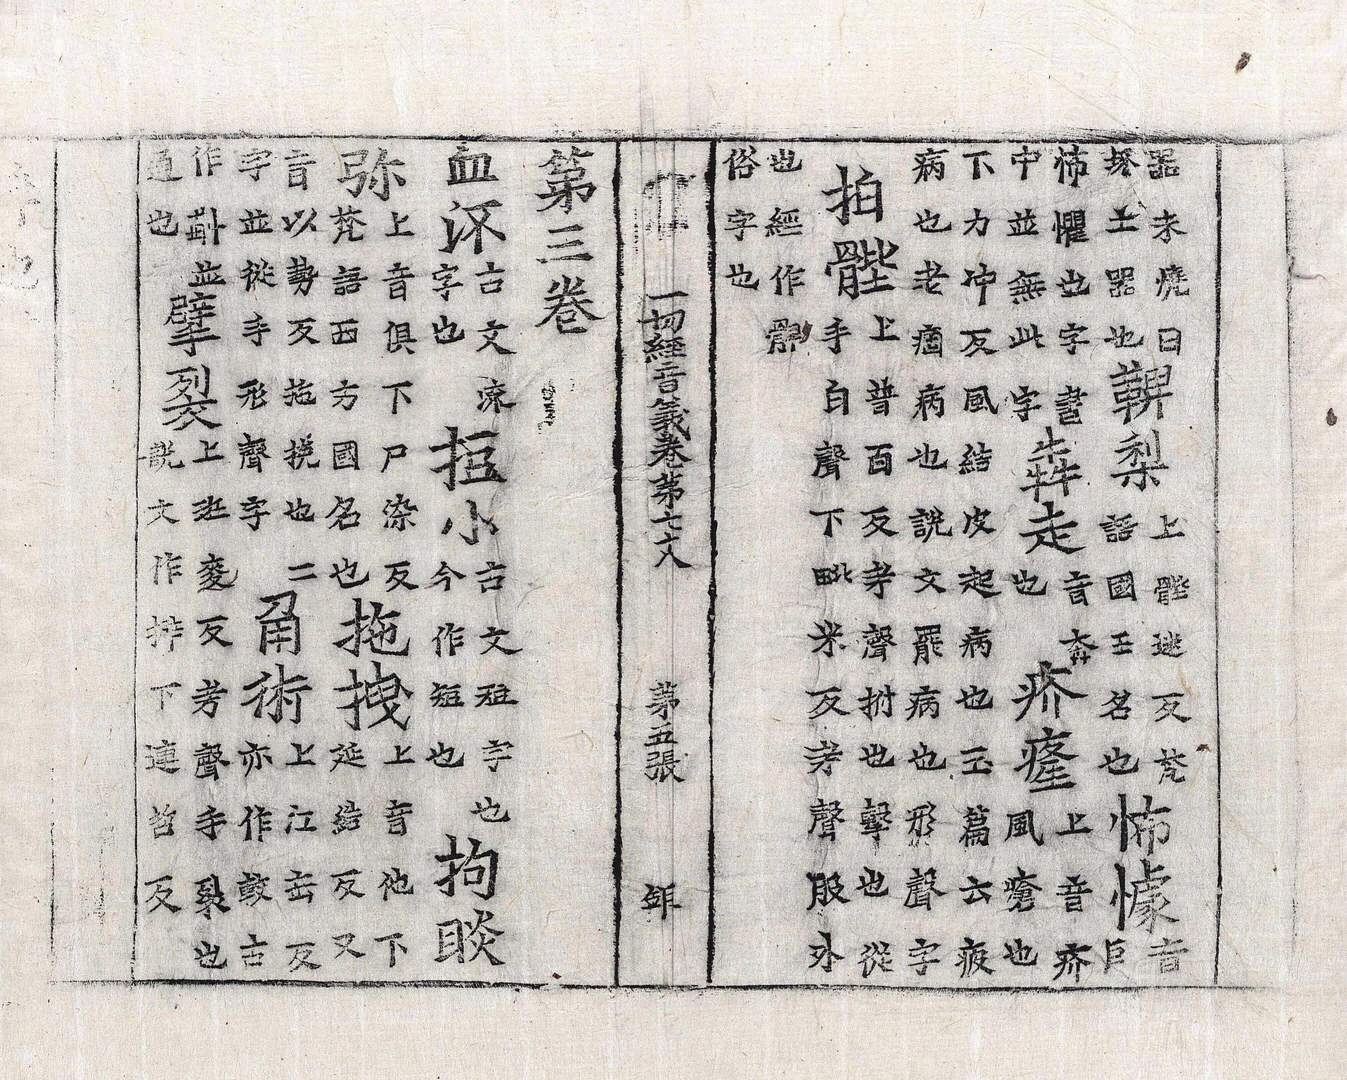 器未燒曰坏土器也鞞梨上髀迷反梵語國王名也怖懅音巨
怖懼也字書中並無此字犇走音奔也疥癃上音疥風瘡也
下力冲反風結皮起病也玉篇云疲病也老痼病也說文罷病也形聲字
拍髀上普百反考聲拊也擊也從手白聲下毗米反考聲股外
也經作䏶俗字也
一切經音義卷第七十八 第五張
第三卷
血㳅古文流字也拒小古文短字也今作短也拘睒
弥上音俱下尸染反梵語西方國名也拖拽上音他下延結反又
音以勢反拖挩也二字並從手形聲字甬術上江岳反亦作較古
作斠並通也擘裂上班麥反考聲手裂也說文作擗下連哲反